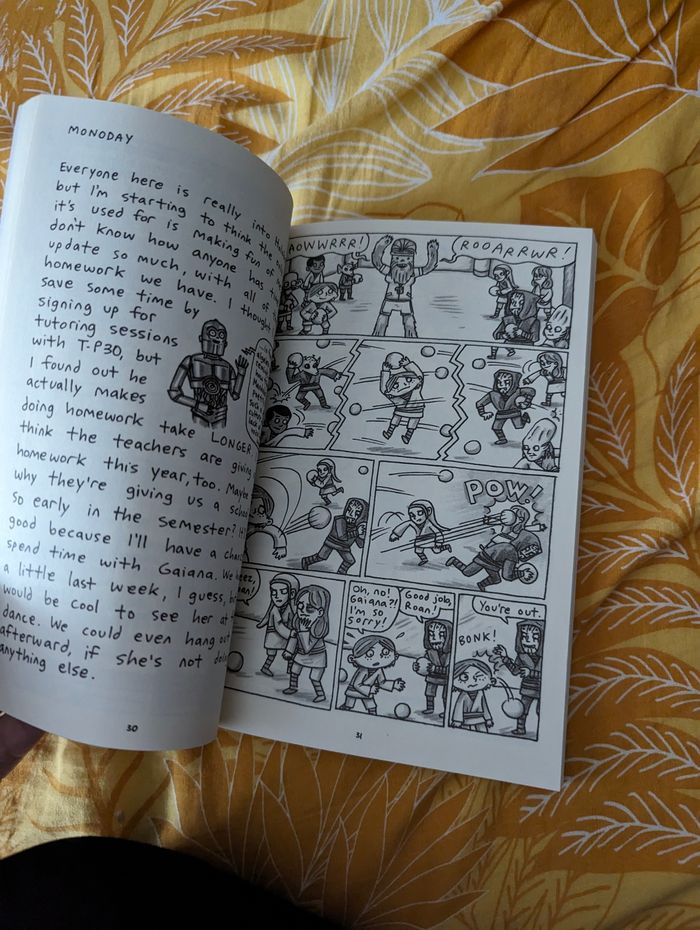 MONODAY
Everyone here is really into
but I'm starting to think the
it's used for is making fun of
don't know how anyone has
update so much, with all of
homework we have. I thought
save some time by
signing up for
tutoring sessions
with T-P30, but
I found out he
actually makes
doing homework take LONGER.
think the teachers are giving
homework this year, too. Maybe
why they're giving us a
so early in the semester?
good because I'll have a
spend time with Gaiana. We
a little last week, I guess,
would be cool to see her at
dance. We could even hang out
afterward, if she's not
anything else.
30
AOWWRRR!
ROOARRWR!
POW!
Oh, no!
Gaiana?!
I'm so
sorry!
Good job,
Roan!
You're out.
BONK!
31